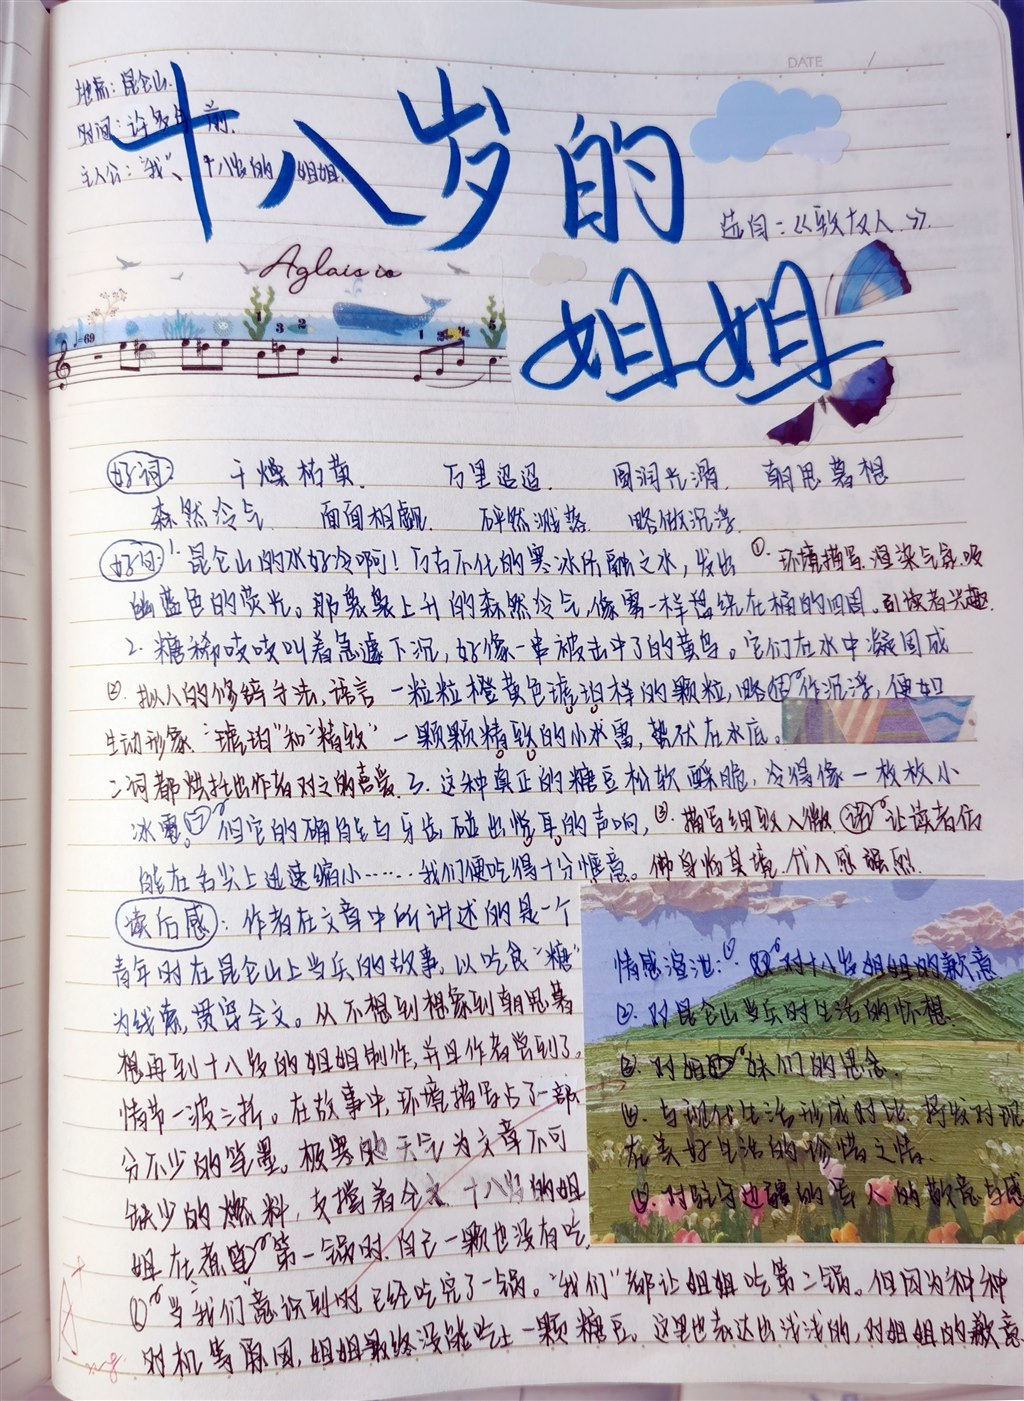 DATE /
地点：昆仑山.
时间：许多年前.
主人公："我"、十八岁的姐姐.
十八岁的
姐姐
选自：《致友人》
Aglais io
=69
1 3 2 1 2 5
好词： 干燥枯黄. 万里迢迢. 圆润光滑. 朝思暮想
森然冷气. 面面相觑. 砰然溅落. 略做沉浮.
好句： 1. 昆仑山的水好冷啊！万古不化的寒冰所融之水，发出 ①. 环境描写. 渲染气氛.吸
幽蓝色的荧光。那袅袅上升的森然冷气，像雾一样萦绕在桶的四周. 引读者兴趣.
2. 糖稀吱吱叫着急遽下沉，好像一串被击中了的黄鸟。它们在水中凝固成
②. 拟人的修辞手法，语言 一粒粒橙黄色琥珀样的颗粒，略作沉浮，便如
生动形象 "琥珀"和"精致" 一颗颗精致的小水雷，蛰伏在水底。
二词都烘托出作者对之的喜爱. 3. 这种真正的糖豆松软酥脆，冷得像一枚枚小
冰雹。但它的确能与牙齿碰出悦耳的声响， ③. 描写细致入微. 让读者仿
能在舌尖上迅速缩小……我们便吃得十分惬意。 佛身临其境. 代入感强烈.
读后感：作者在文章中所讲述的是一个
青年时在昆仑山上当兵的故事，以吃食"糖"
为线索，贯穿全文。从不想到想家到朝思暮
想再到十八岁的姐姐制作，并且作者尝到了。
情节一波三折。在故事中，环境描写占了一部
分不少的笔墨。极寒的天气为文章不可
缺少的燃料，支撑着全文. 十八岁的姐
姐在煮第一锅时. 自己一颗也没有吃.
当"我们"意识到时已经吃完了一锅。"我们"都让姐姐吃第二锅。但因为种种
时机等原因，姐姐最终没能吃上一颗糖豆。这里也表达出浅浅的，对姐姐的歉意
情感渲泄：①. 对十八岁姐姐的歉意
②. 对昆仑山当兵时生活的怀想.
③. 对姐妹们的思念.
④. 与现代生活形成对比. 抒发对现
在美好生活的珍惜之情.
⑤. 对驻守边疆的军人的敬意与感
A+